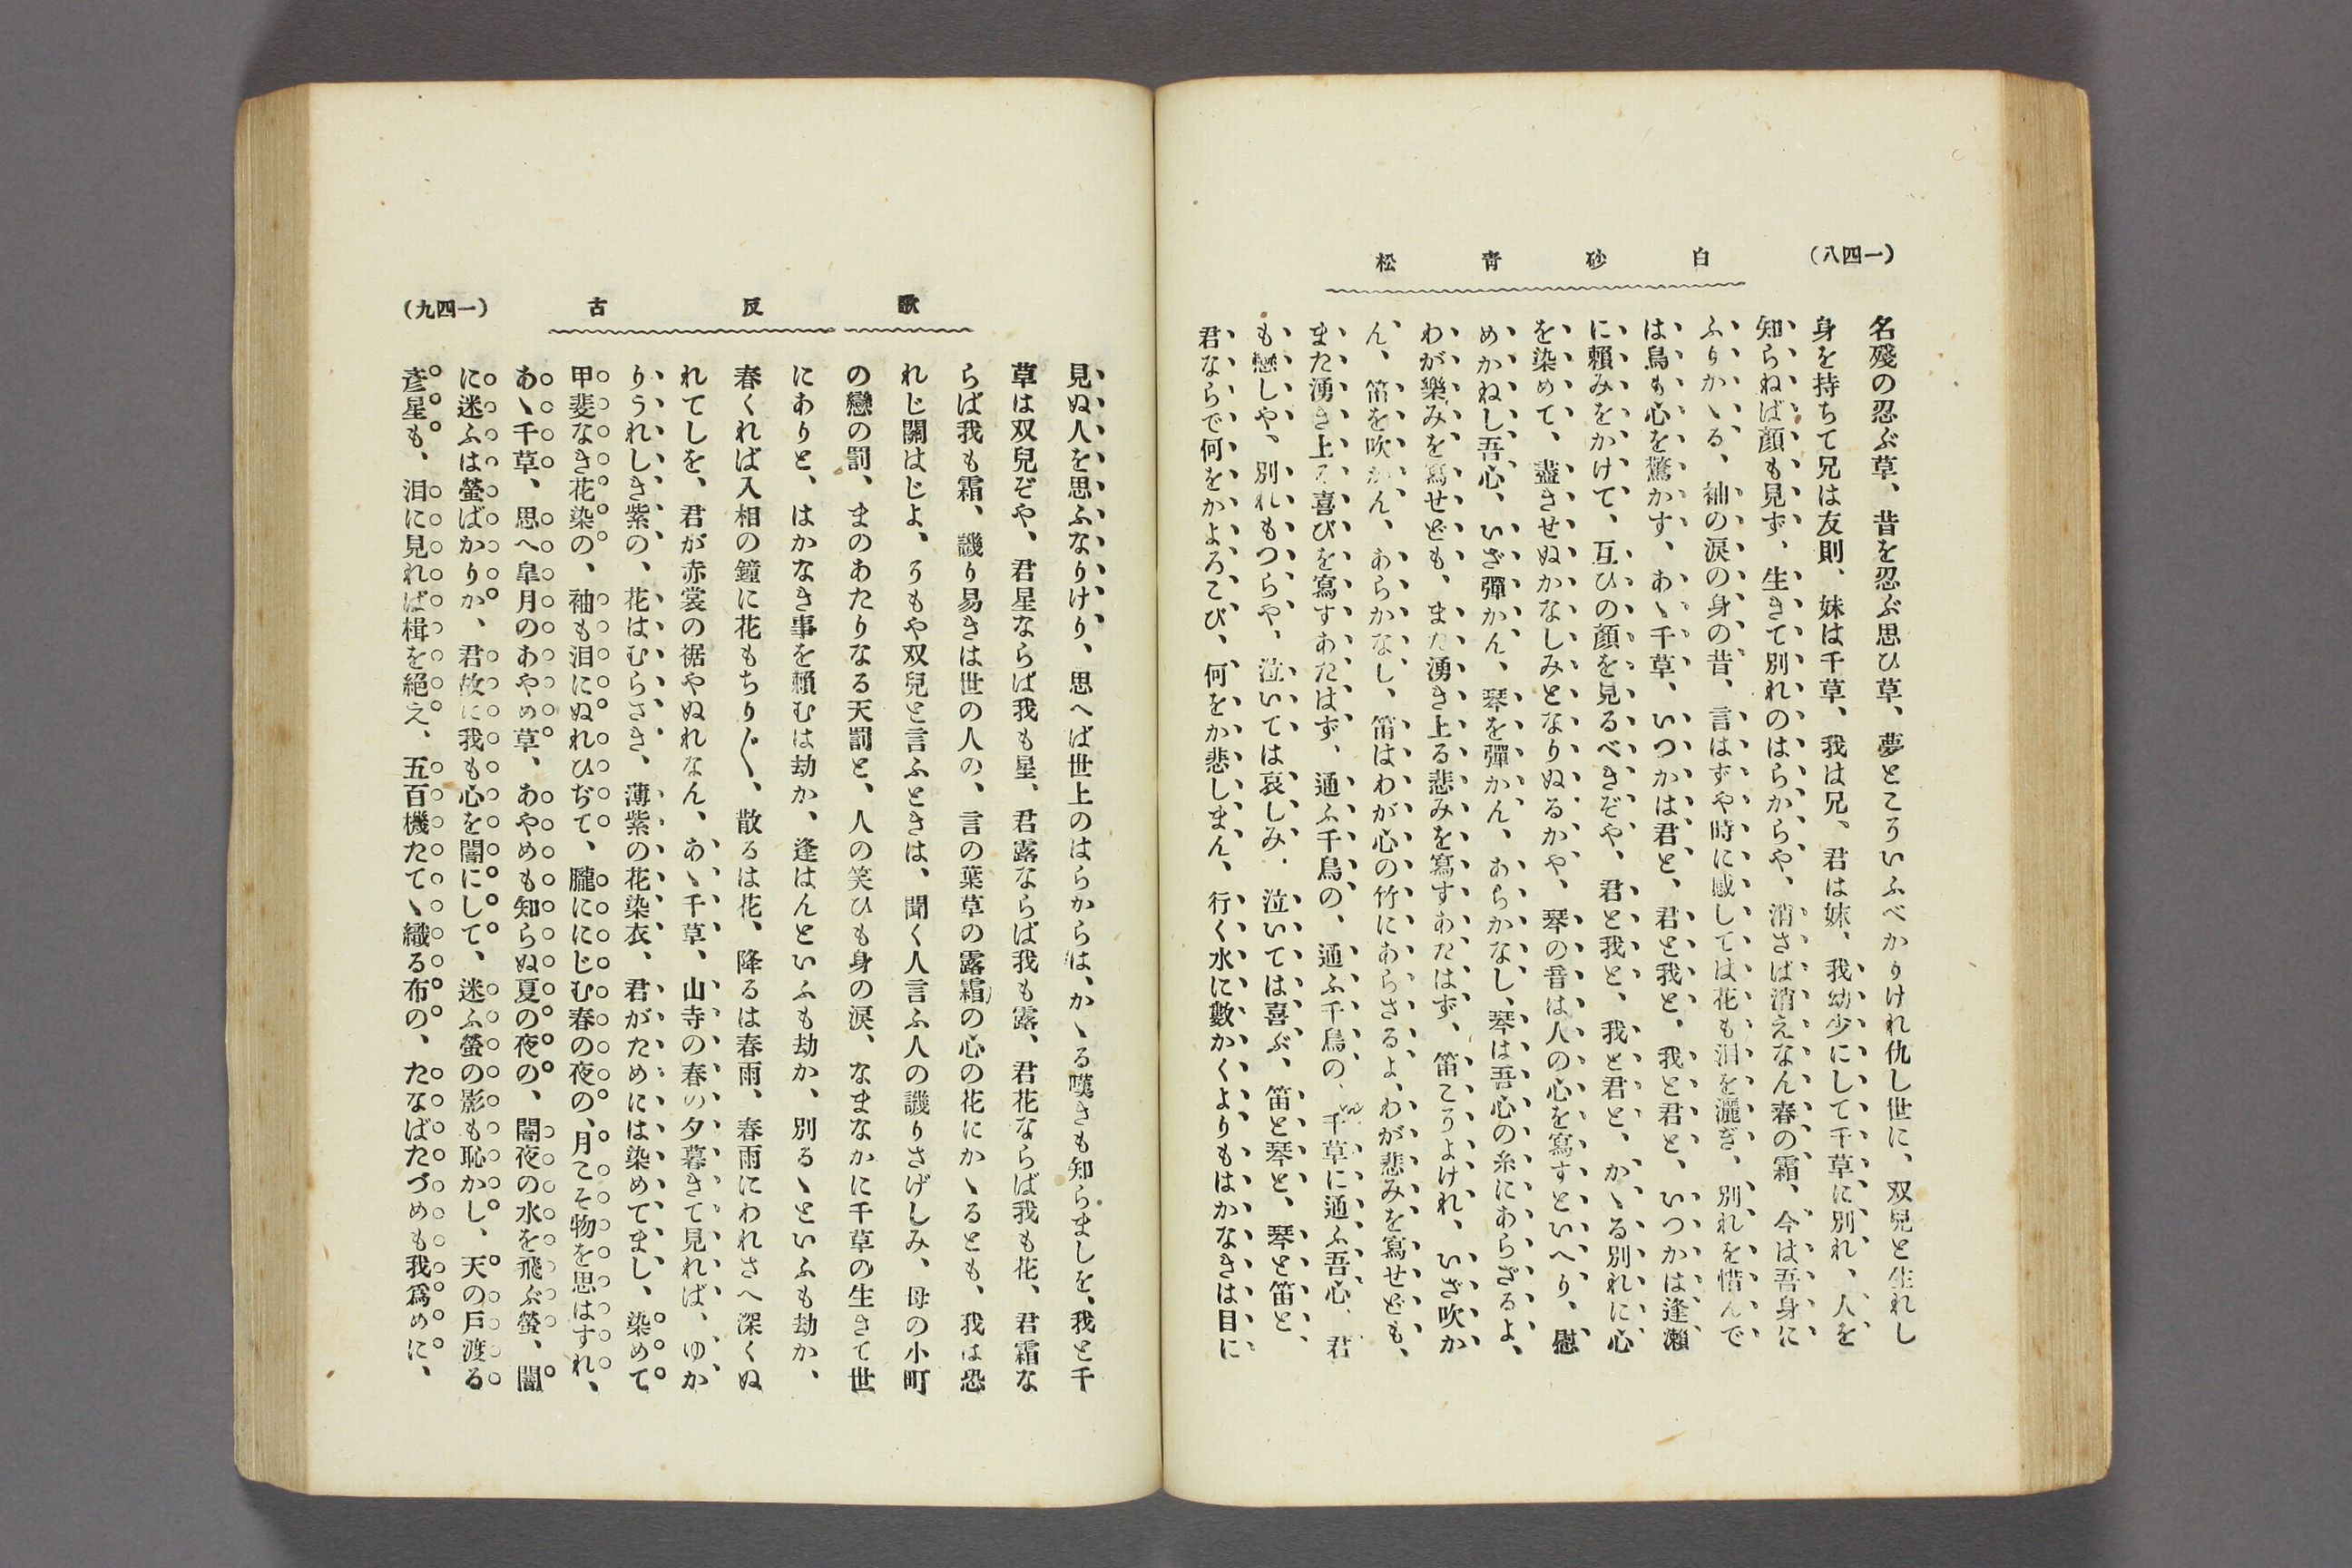 (一四八)
白砂青松
名殘の忍ぶ草、昔を忍ぶ思ひ草、夢とこそいふべかりけれ仇し世に、双兒と生れし
身を持ちて兄は友則、妹は千草、我は兄、君は妹、我幼少にして千草に別れ、人を
知らねば顏も見ず、生きて別れのはらからや、消さば消えなん春の霜、今は吾身に
ふりかゝる、袖の涙の身の昔、言はずや時に感しては花も泪を灑ぎ、別れを惜んで
は鳥も心を驚かす、あゝ千草、いつかは君と、君と我と、我と君と、いつかは逢瀬
に賴みをかけて、互ひの顏を見るべきぞや、君と我と、我と君と、かゝる別れに心
を染めて、盡きせぬかなしみとなりぬるかや、琴の音は人の心を寫すといへり、慰
めかねし吾心、いざ彈かん、琴を彈かん、あらかなし、琴は吾心の糸にあらざるよ、
わが樂みを寫せども、また湧き上る悲みを寫すあたはず、笛こそよけれ、いざ吹か
ん、笛を吹かん、あらかなし、笛はわが心の竹にあらさるよ、わが悲みを寫せども、
また湧き上る喜びを寫すあたはず、通ふ千鳥の、通ふ千鳥の、千草に通ふ吾心、君
も戀しや、別れもつらや、泣いては哀しみ、泣いては喜ぶ、笛と琴と、琴と笛と、
君ならで何をかよろこび、何をか悲しまん、行く水に數かくよりもはかなきは目に
歌反古
(一四九)
見ぬ人を思ふなりけり、思へば世上のはらからは、かゝる嘆きも知らましを、我と千
草は双兒ぞや、君星ならば我も星、君露ならば我も露、君花ならば我も花、君霜な
らば我も霜、譏り易きは世の人の、言の葉草の露霜の心の花にかゝるとも、我は恐
れじ關はじよ、そもや双兒と言ふときは、聞く人言ふ人の譏りさげしみ、母の小町
の戀の罰、まのあたりなる天罰と、人の笑ひも身の涙、なまなかに千草の生きて世
にありと、はかなき事を賴むは劫か、逢はんといふも劫か、別るゝといふも劫か、
春くれば入相の鐘に花もちり〴〵、散るは花、降るは春雨、春雨にわれさへ深くぬ
れてしを、君が赤裳の裾やぬれなん、あゝ千草、山寺の春の夕暮きて見れば、ゆか
りうれしき紫の、花はむらさき、薄紫の花染衣、君がためには染めてまし、染めて
甲斐なき花染の、袖も泪にぬれひぢて、朧ににじむ春の夜の、月こそ物を思はすれ、
あゝ千草、思へ皐月のあやめ草、あやめも知らぬ夏の夜の、闇夜の水を飛ぶ螢、闇
に迷ふは螢ばかりか、君故に我も心を闇にして、迷ふ螢の影も恥かし、天の戸渡る
彥星も、泪に見れば楫を絕え、五百機たてゝ織る布の、たなばたづめも我爲めに、